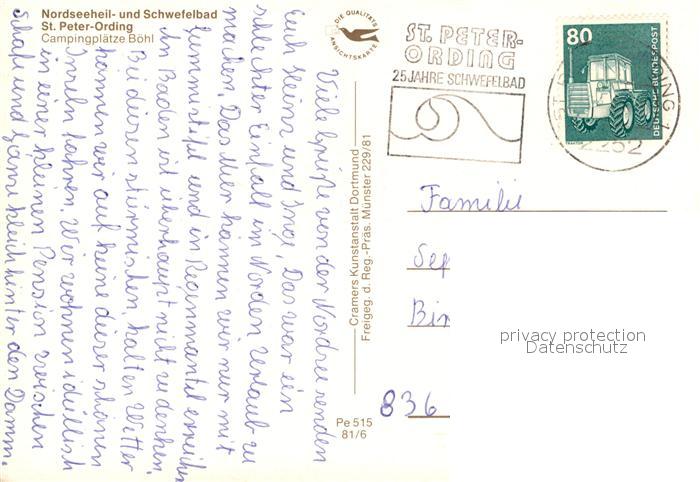 Nordseeheil- und Schwefelbad
St. Peter-Ording
Campingplätze Böhl
DIE QUALITÄTS
ANSICHTSKARTE
ST. PETER-
ORDING
25 JAHRE SCHWEFELBAD
80
DEUTSCHE BUNDESPOST
TRAKTOR
2252
Viele Grüße von der Nordsee senden
Euch Heinz und Inge. Das war ein
schlechter Einfall im Norden Urlaub zu
machen. Das Meer können wir nur mit
Gummistiefel und in Regenmantel erreichen
An Baden ist überhaupt nicht zu denken.
Bei diesen stürmischen, kalten Wetter
können wir auf keine dieser schönen
Inseln fahren. Wir wohnen idyllisch
in einer kleinen Pension zwischen
Schafe und Gänse gleich hinter den Damm.
Cramers Kunstanstalt Dortmund
Freigeg. d. Reg.-Präs. Münster 229/81
Pe 515
81/6
Familie
Sep
Bir
836
privacy protection
Datenschutz